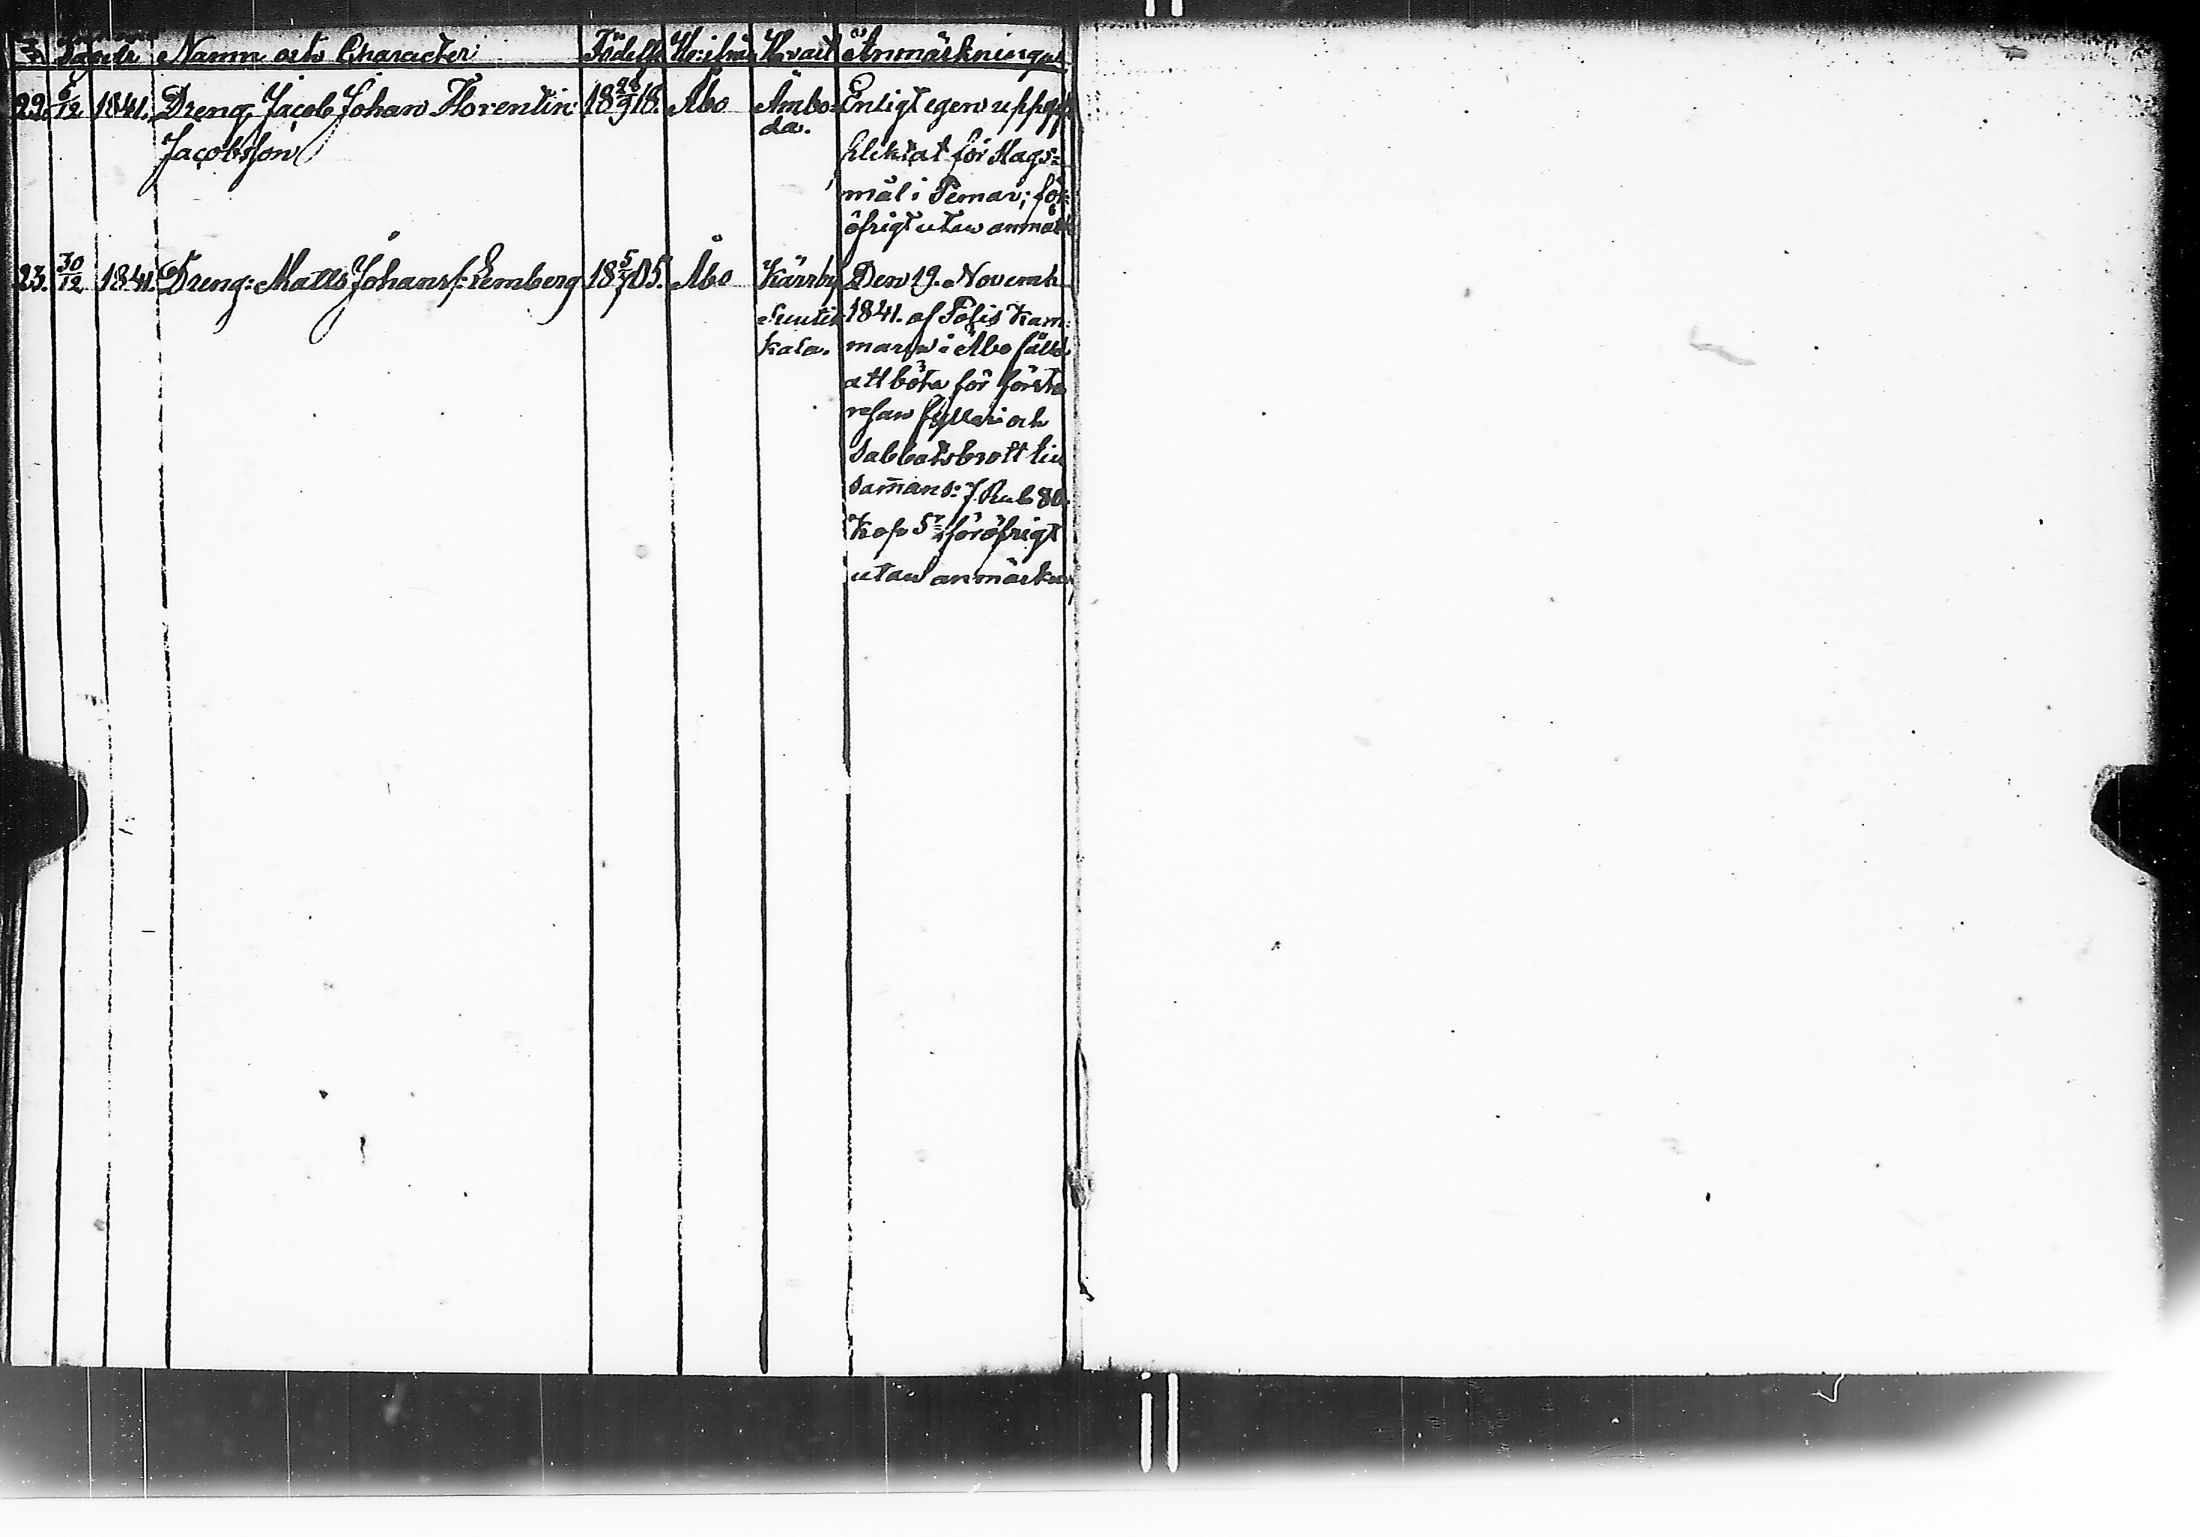 Namn och Character Födelse Hr: ifrån Hvart Anmärkningar
22. 6/12 1841. Dreng Jacob Johan Florentin 18 28/9 18. Åbo Ambo= Enligt egen uppgift
Jacobsson da.
sluktat för slags=
mål i Pemar; för
öfrigt utan anmärk
23. 30/12 1841. Dreng: Matts Johanss: Lemberg 18 5/7 05. Åbo Kärrby Den 19. Novemb
Suuti 1841. af Polis Kam=
kala. maren i Åbo fälld
att böta för första
resan fylleri och
sabbatsbrott till
samans: 7. Rub 80.
Kop Sr; föröfrigt
utan anmärkn